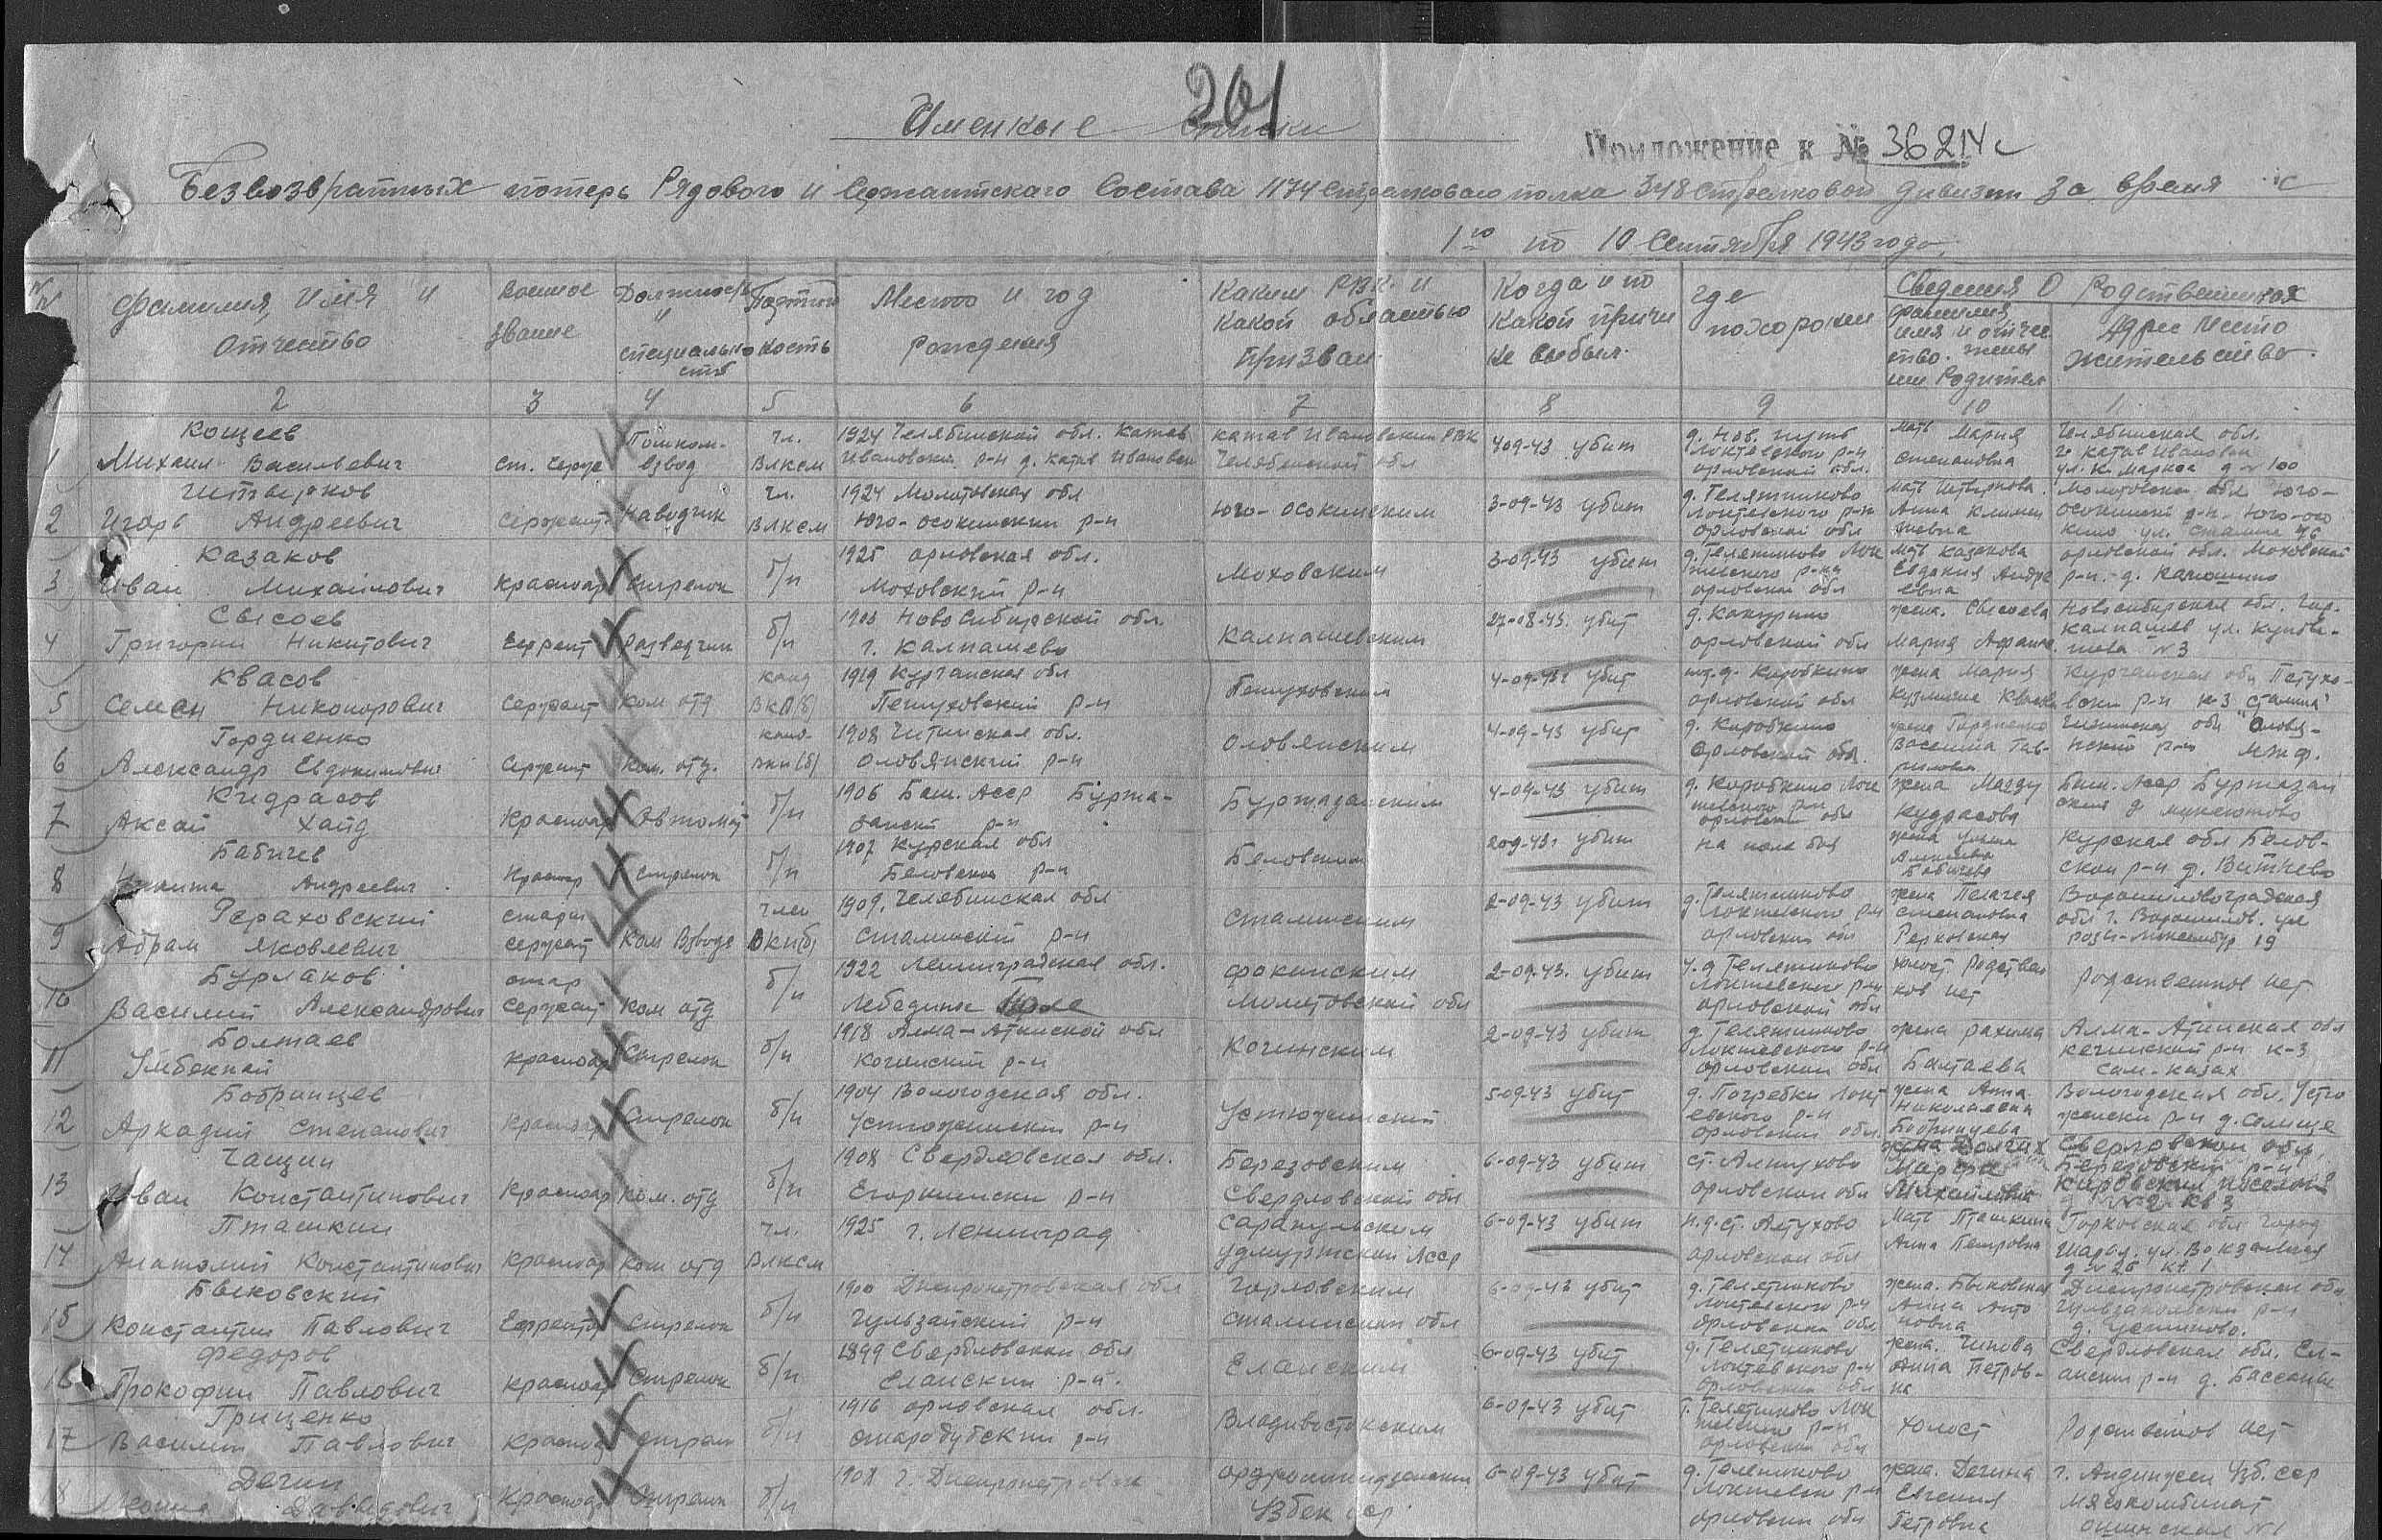 201
Именные списки
Приложение к № 36214с
Безвозвратных потерь Рядового и Сержантского Состава 1174 стрелкового полка 348 стрелковой дивизии за время с
1го по 10 Сентября 1943 года.
Фамилия, Имя и Отчество
Военное звание
Должность и специальность
Партийность
Место и год Рождения
Каким РВК и Какой областью призван
Когда и по Какой причине выбыл.
где похоронен
Сведения о Родственниках
фамилия имя и отчество. жены или Родителя
Адрес место жительство.
1 2 3 4 5 6 7 8 9 10 1
1 Кощеев Михаил Васильевич Ст. Серж Помком. взвод чл. ВЛКСМ 1924 Челябинской обл. Катав Ивановский р-н г. Катав Ивановск Катав Ивановским РВК Челябинской обл 4-09-43 убит д. Нов. путь Локтевского р-н орловской обл. мать Мария Степановна Челябинская обл. г. Катав Ивановск ул. К. Маркса д № 100
2 Игорь Андреевич Сержант Наводчик чл. ВЛКСМ 1924 Молотовская обл Юго-осокинский р-н Юго-осокинским 3-09-43 убит д. Телятниково Локтевского р-н Орловской обл мать Анна Молотовская обл Юго-осокинский р-н Юго-осокино ул. Сталина 76
3 Казаков Иван Михайлович Красноар Стрелок б/п 1925 орловская обл. Моховский р-н Моховским 3-09-43 убит д. Телятниково Локтевского р-на орловской обл мать Казакова Евдокия Андреевна орловской обл. Моховский р-н. д.
4 Свысоев Григорий Никитович Сержант Разведчик б/п 1903 Новосибирской обл. г. Калпашево Калпашевским 27-08-43. убит д. орловской обл жена. Свысоева Мария Новосибирская обл. гор. Калпашев ул. № 3
5 Квасов Семен Никонорович Сержант Ком отд канд ВКП(б) 1919 Курганская обл Петуховский р-н Петуховский 4-09-43г убит д. Коробкино орловской обл жена Мария Квасова Курганская обл Петуховский р-н к-з Сталина
6 Гордиенко Александр Евдокимович Сержант Ком. отд. канд. вкп(б) 1908 Читинская обл. Оловянский р-н Оловянским 4-09-43 убит д. Коробкино Орловской обл. жена Гордиенко Васелина Гавриловна Читинская обл Оловянский р-н
7 Кидрасов Аксан Хаид Красноар Автомат б/п 1906 Баш. Асср Бурзянский р-н 4-09-43 убит д. Коробкино Локтевского р-н орловской обл жена Кудрасова Баш. Асср
8 Бабичев Никита Андреевич Красноар Стрелок б/п 1907 Курская обл Беловский р-н Беловским 2-09-43г убит на поле боя жена Бабичева Курская обл Беловской р-н д. Витчево
9 Рераховский Абрам Яковлевич старш сержант Ком Взвода член ВКП(б) 1909. Челябинская обл Сталинский р-н Сталинским 2-09-43 убит д. Телятниково Локтевского р-н орловской обл жена Пелагея Степановна Ворошиловоградская обл г. Ворошилов. ул розы-Люксембур 19
10 Бурлаков Василий Александрович стар сержант Ком отд б/п 1922 Ленинградская обл. Лебединое Поле фокинским Молотовской обл 2-09-43. убит д Телятниково Локтевского р-н орловской обл холост Родственников нет Родственников нет
11 Болтаев Умбеккай Красноар Стрелок б/п 1918 Алма-Атинской обл Когинский р-н Когинским 2-09-43 убит д. Телятниково Локтевского р-н орловской обл жена Рахима Балтаева Алма-Атинская обл кегинский р-н к-з
12 Бобринцев Аркадий Степанович Красноар Стрелок б/п 1904 Вологодская обл. Устюженский р-н Устюженский 5-09-43 убит д. Погребки Локтевского р-н орловской обл. жена Анна Николаевна Бобринцева Вологодская обл. Устюженский р-н д. Селище
13 Чащин Иван Константинович Красноар Ком. отд б/п 1908 Свердловская обл. Егоршинский р-н Березовским Свердловской обл 6-09-43 убит ст. Алтухово орловской обл жена Долгах Марфа Михайловна Свердловской обл, Березовский р-н Кировский поселок № 2 кв 3
14 Пташкин Анатолий Константинович Красноар Ком отд чл. ВЛКСМ 1925 г. Ленинград Сарапульским удмуртской Асср 6-09-43 убит ст. Алтухово орловской обл Мать Пташкина Анна Петровна Горковская обл город ул. Вокзальная д № 26 кв 1
15 Быковский Константин Павлович Ефрейтор Стрелок б/п 1900 Днепропетровская обл р-н Горловским сталинской обл 6-09-43 убит д. Телятниково Локтевского р-н орловской обл жена. Быковская Анна Антоновна Днепропетровская обл р-н д. Устиново.
16 Федоров Прокофий Павлович Красноар Стрелок б/п 1899 Свердловской обл Еланский р-н. Еланским 6-09-43 убит д. Телятниково Локтевского р-н орловской обл жена. Анна Петровна Свердловская обл. Еланский р-н д.
17 Гриценко Василий Павлович Красноар стрелок б/п 1916 орловская обл. стародубский р-н Владивостокским 6-09-43 убит Телятниково р-н орловской обл холост Родственников нет
8 Дегин Давидович Красноар Стрелок б/п 1908 г. Днепропетровск орджоникидзевским Узбек сср 6-09-43 убит д. Телятниково Локтевского р-н орловской обл жена. Дегина Евгения Петровна г. Андижан Узб. сср Мясокомбинат